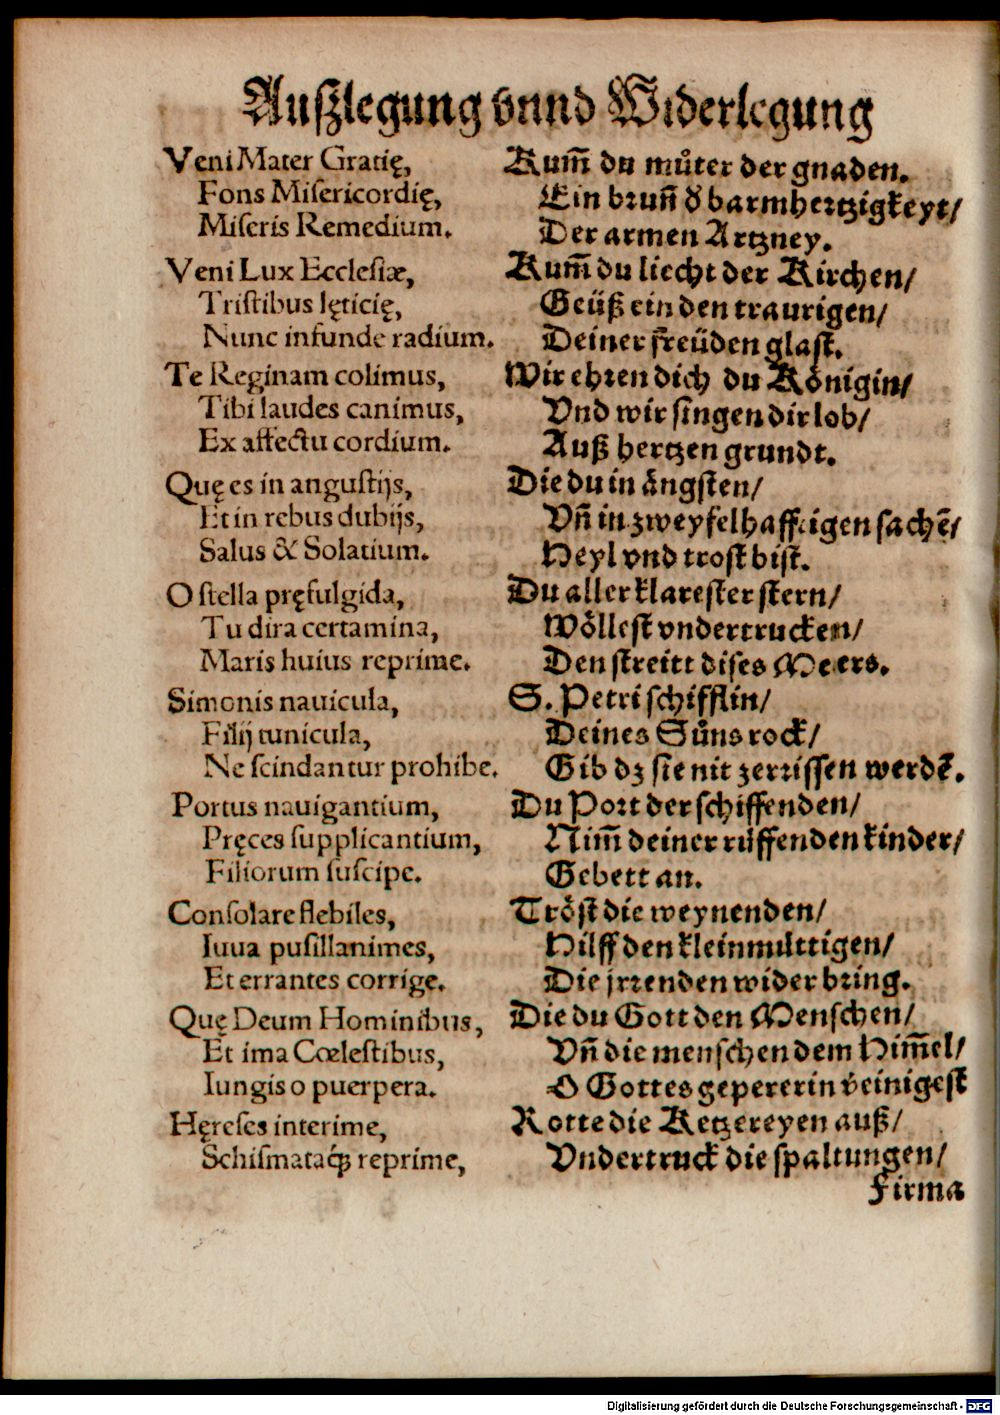 Auſzlegung vnnd Widerlegung
Veni Mater Gratię,
Fons Miſericordię,
Miſeris Remedium.
Veni Lux Eccleſiæ,
Triſtibus lęticię,
Nunc infunde radium.
Te Reginam colimus,
Tibi laudes canimus,
Ex affectu cordium.
Quę es in anguſtijs,
Et in rebus dubijs,
Salus & Solatium.
O ſtella pręfulgida,
Tu dira certamina,
Maris huius reprime.
Simonis nauicula,
Filij tunicula,
Ne ſcindantur prohibe.
Portus nauigantium,
Pręces ſupplicantium,
Filiorum ſuſcipe.
Conſolare flebiles,
Iuua puſillanimes,
Et errantes corrige.
Quę Deum Hominibus,
Et ima Cœleſtibus,
Iungis o puerpera.
Hęreſes interime,
Schiſmataq́ꝫ reprime,
Kum̃ du můter der gnaden.
Ein brun̄ d̕ barmhertzigkeyt/
Der armen Artzney.
Kum̃ du liecht der Kirchen/
Geüß ein den traurigen/
Deiner freüden glaſt.
Wir ehren dich du Koͤnigin/
Vnd wir ſingen dir lob/
Auß hertzen grundt.
Die du in aͤngſten/
Vn̄ in zweyfelhafftigen ſachē/
Heyl vnd troſt biſt.
Du aller klareſter ſtern/
Woͤlleſt vndertrucken/
Den ſtreitt diſes Meers.
S. Petri ſchifflin/
Deines Sůns rock/
Gib dz ſie nit zerriſſen werdē.
Du Port der ſchiffenden/
Nim̃ deiner růffenden kinder/
Gebett an.
Troͤſt die weynenden/
Hilff den kleinmůttigen/
Die jrrenden wider bring.
Die du Gott den Menſchen/
Vn̄ die menſchen dem Him̃el/
O Gottes gepererin v̕einigeſt
Rotte die Ketzereyen auß/
Vndertruck die ſpaltungen/
Firma
Digitalisierung gefördert durch die Deutsche Forschungsgemeinschaft - DFG